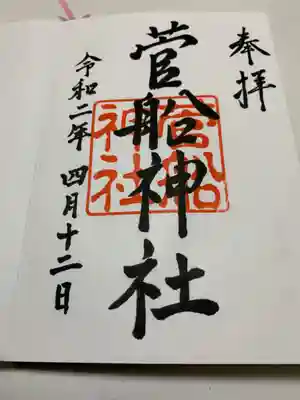 奉拝
菅船神社
菅船神社
令和二年 四月十二日